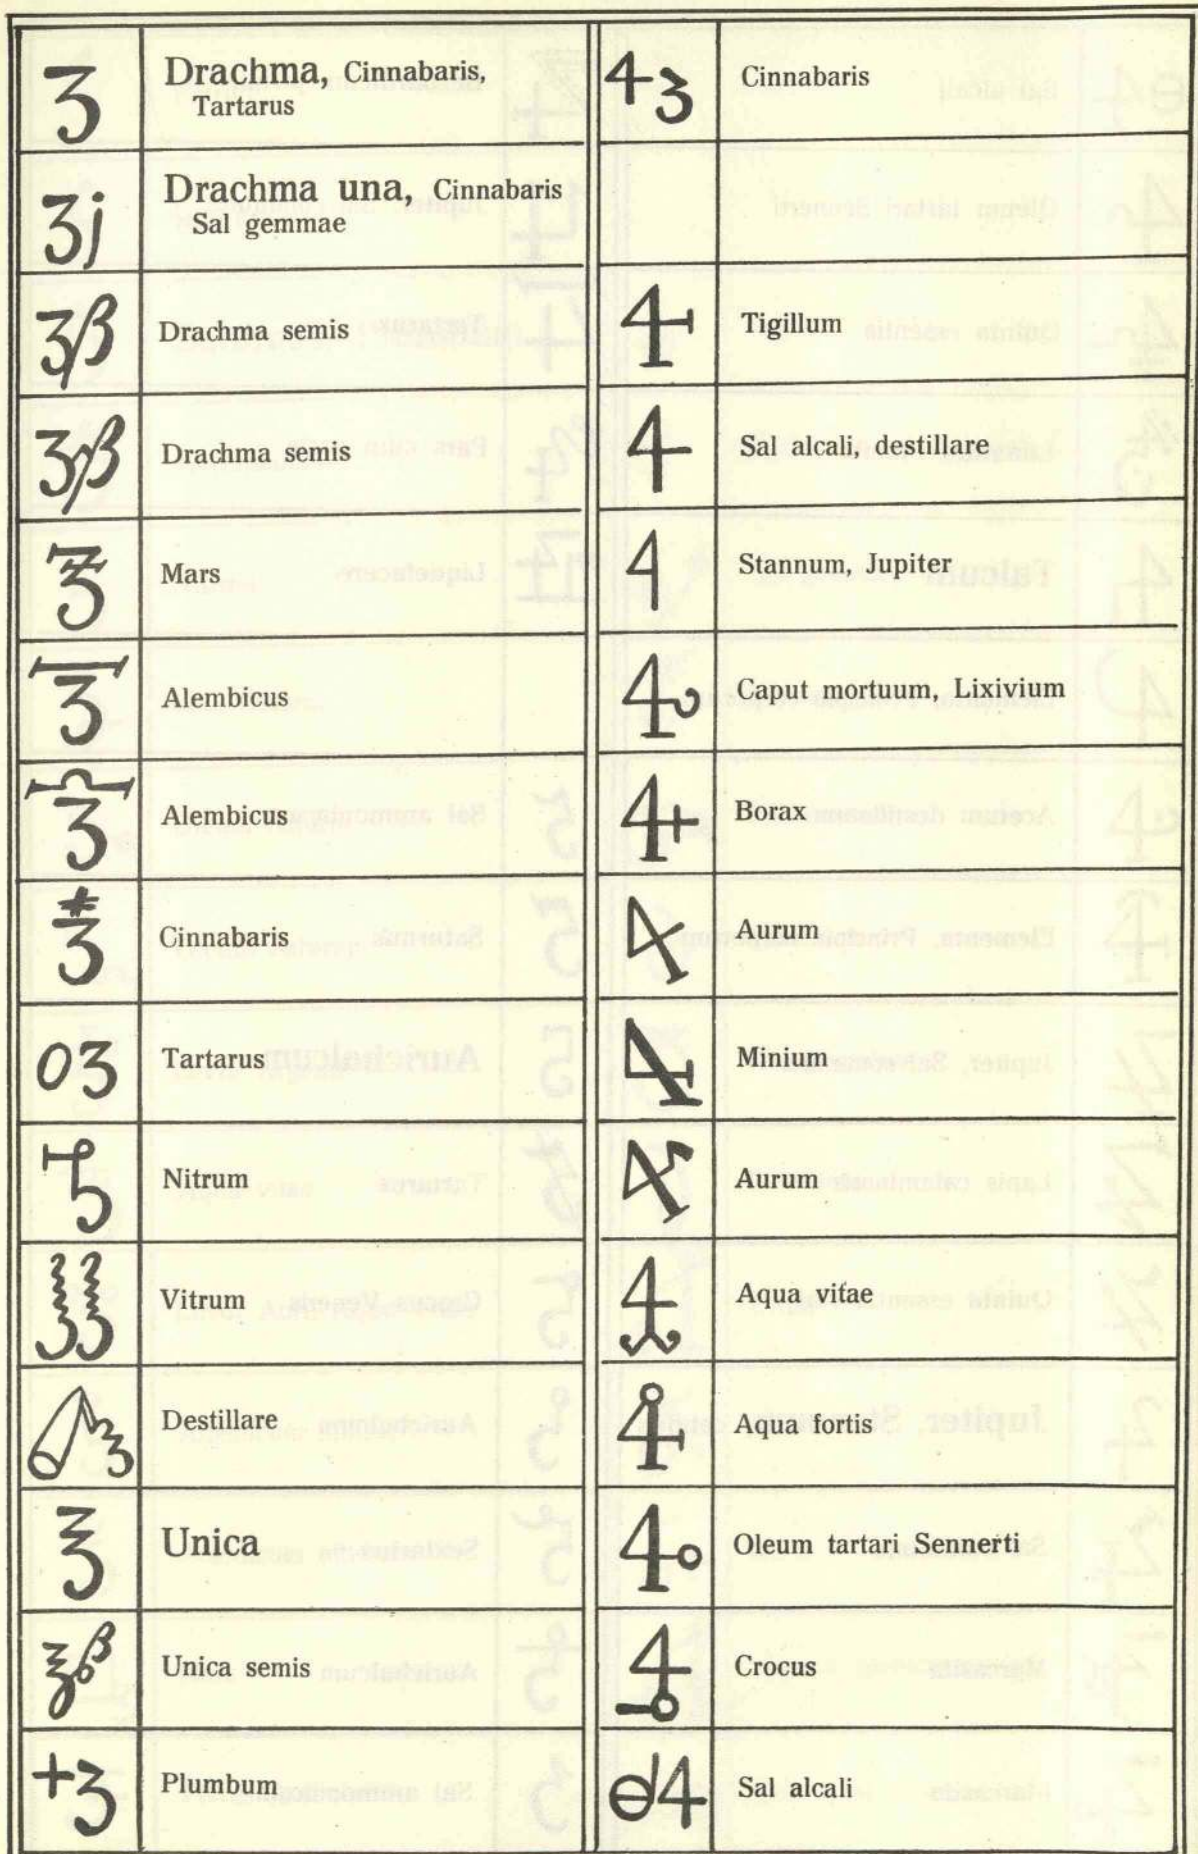 Drachma, Cinnabaris,
Tartarus
Drachma una, Cinnabaris
Sal gemmae
Drachma semis
Drachma semis
Mars
Alembicus
Alembicus
Cinnabaris
Tartarus
Nitrum
Vitrum
Destillare
Unica
Unica semis
Plumbum
Cinnabaris
Tigillum
Sal alcali, destillare
Stannum, Jupiter
Caput mortuum, Lixivium
Borax
Aurum
Minium
Aurum
Aqua vitae
Aqua fortis
Oleum tartari Sennerti
Crocus
Sal alcali